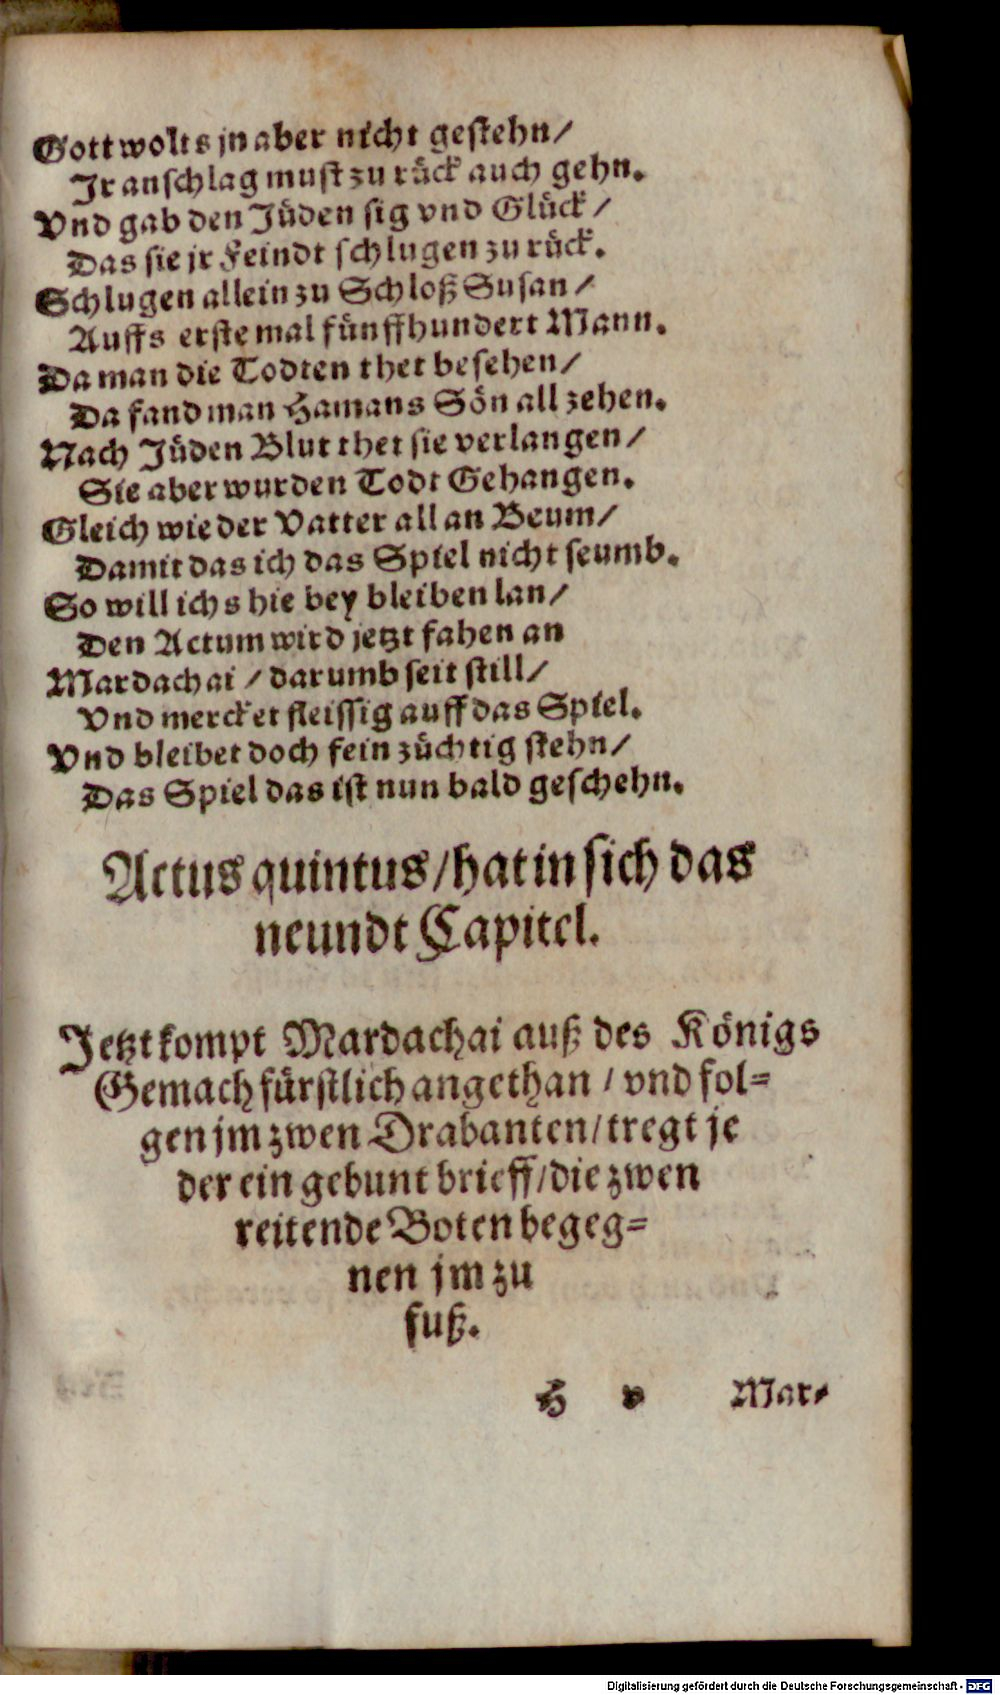 Gott wolts jn aber nicht gestehn/
Jr anschlag must zu rück auch gehn.
Vnd gab den Jüden sig vnd Glück/
Das sie jr Feindt schlugen zu rück.
Schlugen allein zu Schloß Susan/
Auffs erste mal fünffhundert Mann.
Da man die Todten thet besehen/
Da fand man Hamans Sön all zehen.
Nach Jüden Blut thet sie verlangen/
Sie aber wurden Todt Gehangen.
Gleich wie der Vatter all an Beum/
Damit das ich das Spiel nicht seumb.
So will ichs hie bey bleiben lan/
Den Actum wird jetzt fahen an
Mardachai/ darumb seit still/
Vnd mercket fleissig auff das Spiel.
Vnd bleibet doch fein züchtig stehn/
Das Spiel das ist nun bald geschehn.
Actus quintus/ hat in sich das
neundt Capitel.
Jetzt kompt Mardachai auß des Königs
Gemach fürstlich angethan/ vnd fol=
gen jm zwen Drabanten/ tregt je
der ein gebunt brieff/ die zwen
reitende Boten begeg=
nen jm zu
fuß.
H v Mar=
Digitalisierung gefördert durch die Deutsche Forschungsgemeinschaft - DFG